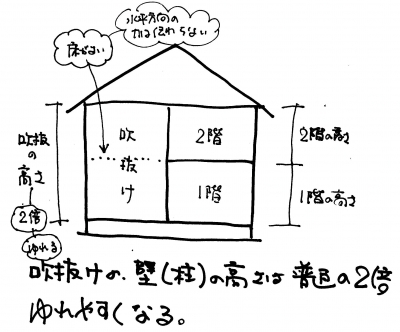 水平方向の
力は伝わらない
床がない
吹抜の高さ
2倍
ゆれる
吹抜け
2階
1階
2階の高さ
1階の高さ
吹抜けの壁(柱)の高さは普通の2倍
ゆれやすくなる。